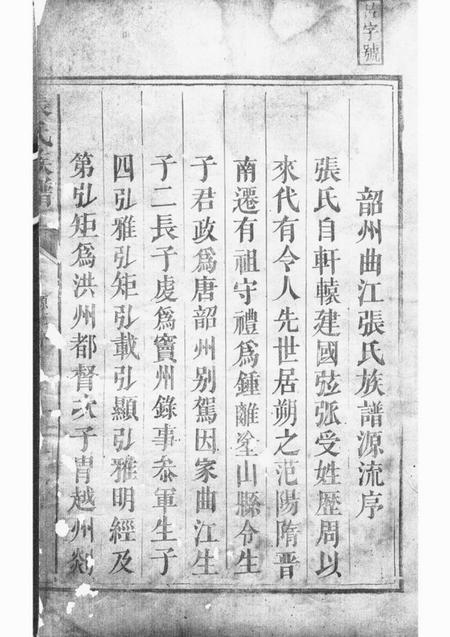 韶州曲江張氏族譜源流序
張氏自軒轅建國弦弧受姓歷周以
來代有令人先世居朔之范陽隋晋
南遷有祖守禮爲鍾離塗山縣令生
子君政爲唐韶州别駕因家曲江生
子二長子虔爲竇州錄事叅軍生子
四弘雅弘矩弘載弘顯弘雅明經及
第弘矩爲洪州都督次子冑越州剡
氏族譜
字號